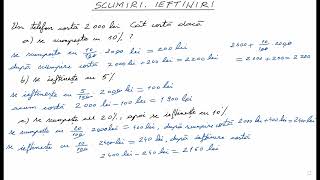 SCUMIRI. IEFTINIRI
Un telefon costă 2 000 lei. Cât costă dacă
a) se scumpește cu 10% ?
se scumpește cu 10/100 · 2000 lei = 200 lei 2000 + 10/100 · 2000
după scumpire costă 2000 lei + 200 lei = 2200 lei = 2000 + 200 =
b) se ieftinește cu 5%
se ieftinește cu 5/100 · 2000 lei = 100 lei
acum costă 2 000 lei - 100 lei = 1 900 lei
se scumpește cu 20%, apoi se ieftinește cu 10%
se scumpește cu 20/100 · 2000 lei = 400 lei, după scumpire costă 2000 lei + 400 lei = 2400 lei
se ieftinește cu 10/100 · 2400 lei = 240 lei, după ieftinire costă
2400 lei - 240 lei = 2160 lei